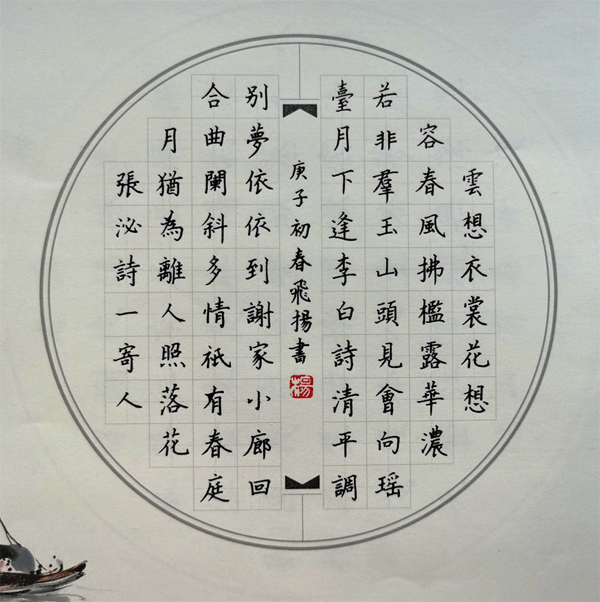 雲想衣裳花想
容春風拂檻露華濃
若非羣玉山頭見會向瑶
臺月下逢李白詩清平調
庚子初春飛揚書
楊
别夢依依到謝家小廊回
合曲闌斜多情祗有春庭
月猶為離人照落花
張泌詩一寄人